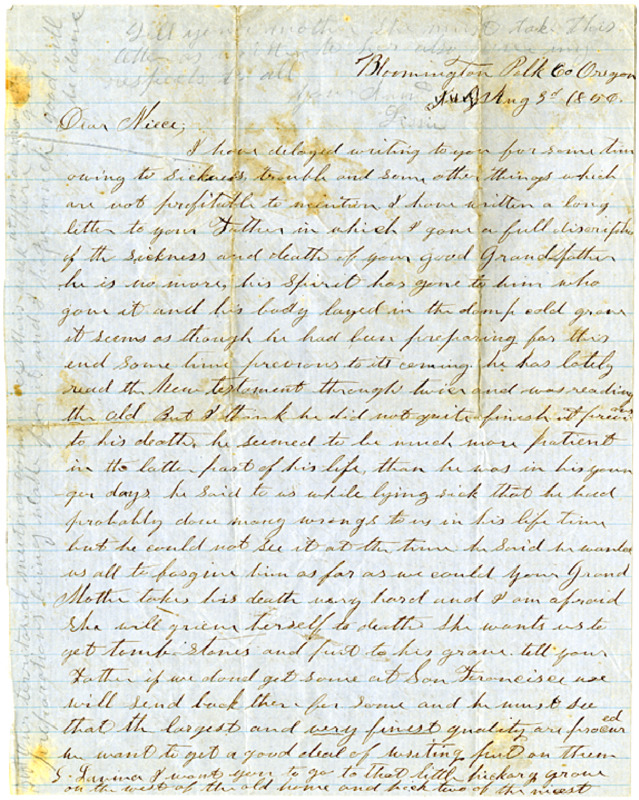 Tell your mother she must take this
letter as written to her also give my
respects to all
Bloomington Polk Co Oregon
Aug 3rd 1850.
Dear Niece;
I have delayed writing to you for some time
owing to sickness trouble and some other things which
are not profitable to mention I have written a long
letter to your Father in which I gave a full discription
of the sickness and death of your good Grandfather
he is no more, his spirit has gone to him who
gave it and his body layed in the damp cold grave
it seems as though he had been preparing for this
end some time previous to its coming he has lately
read the New testament through twice and was reading
the old But I think he did not quite finish it previous
to his death, he seemed to be much more patient
in the latter part of his life, than he was in his youn
ger days he said to us while lying sick that he had
probably done many wrongs to us in his life time
but he could not see it at the time he said he wanted
us all to forgive him as far as we could your Grand
Mother takes his death very hard and I am afraid
she will grieve herself to death she wants us to
get tombstones and put to his grave. tell your
Father if we dond get some at San Francisco we
will send back there for some and he must see
that the largest and very finest quality are procured
we want to get a good deal of writing put on them
I want you to go to that little hickory grove
on the west of the old home and back two of the nicest